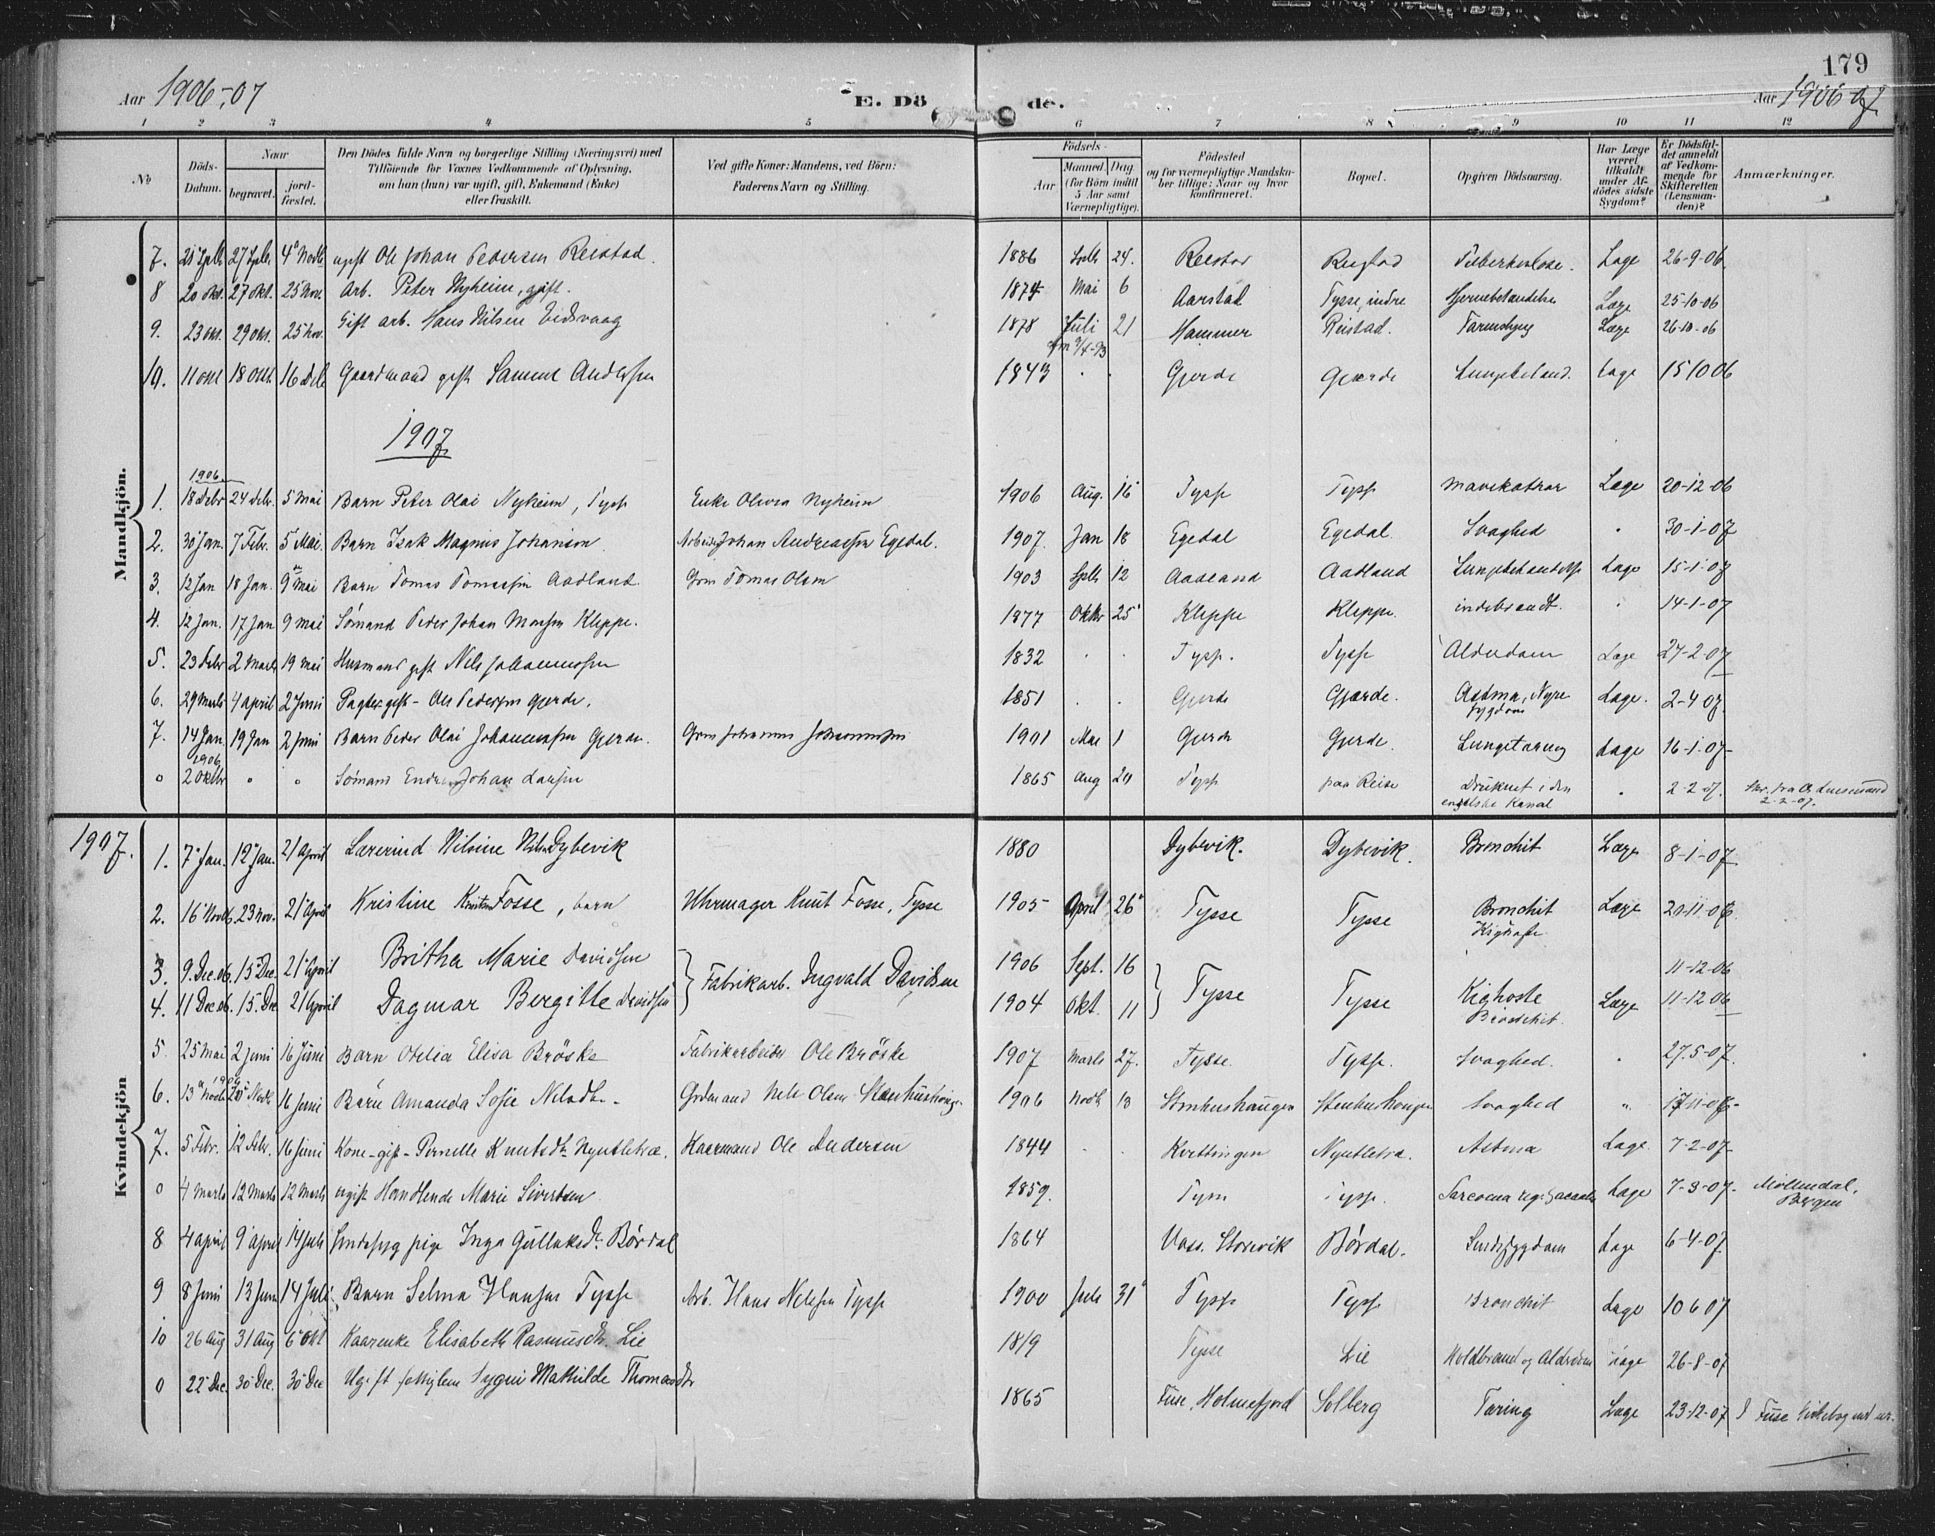 179
Aar 1906-07 E. Dö de. Aar 1906-07
1 2 3 4 5 6 7 8 9 10 11 12
No Döds-Datum. Naar begravet. jord-fæstet. Den Dödes fulde Navn og borgerlige Stilling (Næringsvei) med Tilföiende for Voxnes Vedkommende af Oplysning, om han (hun) var ugift, gift, Enkemand (Enke) eller fraskilt. Ved gifte Koner: Mandens, ved Börn: Faderens Navn og Stilling. Födsels- Aar Maaned Dag (for Börn indtil 5 Aar samt Værnepligtige). Födested og for værnepligtige Mandska-ber tillige: Naar og hvor konfirmeret. Bopæl. Opgiven Dödsaarsag. Har Læge været tilkaldt under Af-dödes sidste Sygdom? Er Dödsfal-det anmeldt af Vedkom-mende for Skifteretten (Lensman-den)? Anmærkninger.
Mandkjön.
7. 21 Sptb 27 Sptb. 4 Novb ugift Ole Johan Pedersen Reistad. 1886 Sptb 24. Reistad Reistad Tuberkulose. Læge 26-9-06
8 20 Okt. 27 Okt. 25 Nov. Arb. Peter Nyheim, gift. 1874 Mai 6 Aarstad Tysse, indre Hjernebetændelse Læge 25-10-06
9. 23 Okt. 29 Okt. 25 Nov. Gift arb. Hans Nilsen Eidsvaag 1878 Juli 21 Hammer Reistad. Tarmslyng Læge 26-10-06
10. 11 Okt 18 Okt. 16 Deb Gaardmand gift Samuel Andersen 1843 . . Gjerde Gjærde Lungebetænd. Læge 15 10 06
1907
1906
1. 18 Debr 24 Debr. 5 Mai Barn Peter Olai Nyheim, Tyss Enke Olivia Nyheim 1906 Aug. 16 Tysse Tysse Mavekatar Læge 20-12-06
2. 30 Jan. 7 Febr. 5 Mai. Barn Isak Magnus Johanson Arbeider Johan Andreassen Egedal. 1907. Jan 18 Egedal Egedal. Svaghed " 30-1-07
3. 12 Jan 18 Jan. 9 Mai Barn Tomas Tomassen Aadland Grm Tomas Olsen 1903 Sptb 12 Aadland Aadland Lungebetændelse Læge 15-1-07
4. 12 Jan. 17 Jan 9 Mai Sömand Peder Johan Monsen Kleppe. 1877 Oktbr 25 Kleppe Kleppe. indebrændt. . 14-1-07
5. 23 Febr 2 Marts 19 Mai Husmand gift Nils Johannessen 1832 . . Tysse. Tysse Alderdom Læge 27-2-07
6. 29 Marts 4 April 2 Juni Pagter gift - Ole Pedersen Gjerde. 1851 . . Gjerde Gjærde. Astma, Nyre sygdom Læge. 2-4 07.
7. 14 Jan. 19 Jan 2 Juni Barn Peder Olai Johannessen Gjerde. Grm Johannes Johannessen 1901 Mai 1 Gjerde Gjerde. Lungetæring Læge 16-1-07-
1906
0 2 Oktbr " " Sömand Endre Johan Larsen 1865 Aug 20 Tysse paa Reise Druknet i den engelske Kanal " 2-2-07. Skr. fra O. Lensmand 2-2-07.
1907.
Kvindekjön
1. 7 Jan. 12 Jan. 21 April Lærerind Nilsine Nilsen Dybevik 1880 Dybevik. Dybevik. Bronchit Læge 8-1-07
2. 16 Novb. 23 Nov. 21 April Kristine Knutsen Fosse, barn Uhrmager Knut Fosse, Tysse 1905 April 26 Tysse Tysse Bronchit Kighoste Læge 20-11-06.
3. 9. Dec. 06. 15. Dec. 21 April Britha Marie Davidsen Fabrikarb. Ingvald Davidsen 1906 Sept. 16 Tysse Tysse Kighoste Bronchit. Læge 11-12-06
4. 11 Dec. 06. 15. Dec 21 April Dagmar Bergitte Davidsen 1904 Okt. 11 11-12 06
5. 25 Mai 2 Juni 16 Juni Barn Otelia Elisa Bröske Fabrikarbeider Ole Bröske 1907 Marts 27. Tysse. Tysse. Svaghed. . 27.5-07.
6. 13 Novb 1906 20 Novb. 16 Juni Barn Amanda Sofie Nilsdtr. Grdmand Nils Olsen Stenhushaugen 1906 Novb 10 Stenhushaugen Stenhushaugen Svaghed " 17-11-06-
7. 5 Febr. 12 Febr. 16 Juni Kone-gift- Pernille Knutsdtr Nyutletræ. Kaarmand Ole Andersen 1844 . . Kvittingen Nyutletræ. Astma Læge 7-2-07-
0 4 Marts 12 Marts 12 Marts ugift Handlende Marie Sivertsen 1859. Tysse Tysse. Sarcoma Læge 7-3-07. Möllendal, Bergen
8 4 April 9 April 14 Juli Sindssyg pige Inga Gullaksdtr. Bördal 1864 Voss. Storevik Bördal. Sindssygdom Læge 6-4-07.
9 8 Juni 13 Juni 14 Juli Barn Selma Hansen Tysse Arb. Hans Nelssen Tysse 1900 Juli 31 Tysse Tysse Bronchit Læge 10 6 07
10 26 Aug 31 Aug 6 Okt Kaarenke Elisabeth Rasmusdtr. Lie 1819 Tysse Lie Koldbrand og Alderdom Læge 26-8-07
0 22 Dec. 30 Dec. 30 Dec Ugift Sygni Mathilde Thomasdtr 1865 Fuse, Holmefjord Solberg Tæring Læge 23-12-07 I Fuse Kirkebog